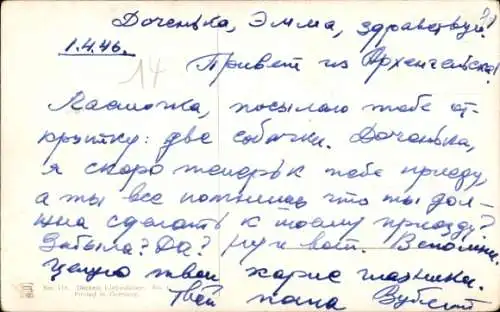 Доченька, Эмма, здравствуй!
1.4.46.
14
Привет из Архангельска!
посылаю тебе от-
крытку: две собачки. Доченька,
я скоро теперь к тебе приеду,
а ты все помнишь что ты дол-
жна сделать к моему приезду?
Забыла? Да? Ну и вот. Вспомни.
Целую твои карие глазки.
Твой папа
Printed in Germany